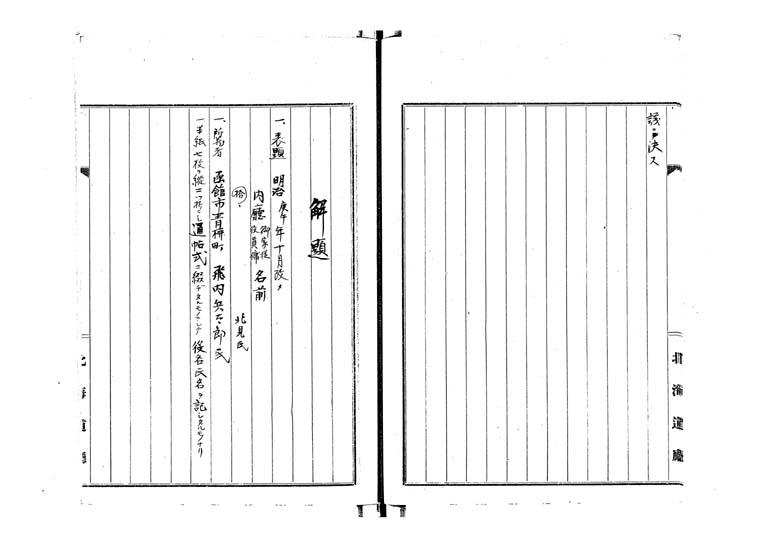 議ヲ決ス
北海道廳
解題
一、表題 明治庚午年十月改メ
内廳 御家従 役員席 名前
拾、
北見氏
一、所有者 函館市青柳町 飛内兵太郎氏
一半紙七枚ヲ縦二ツ折トシ通帖式ニ綴ヂタルモノニシテ役名氏名ヲ記シタルモノナリ
北海道廳